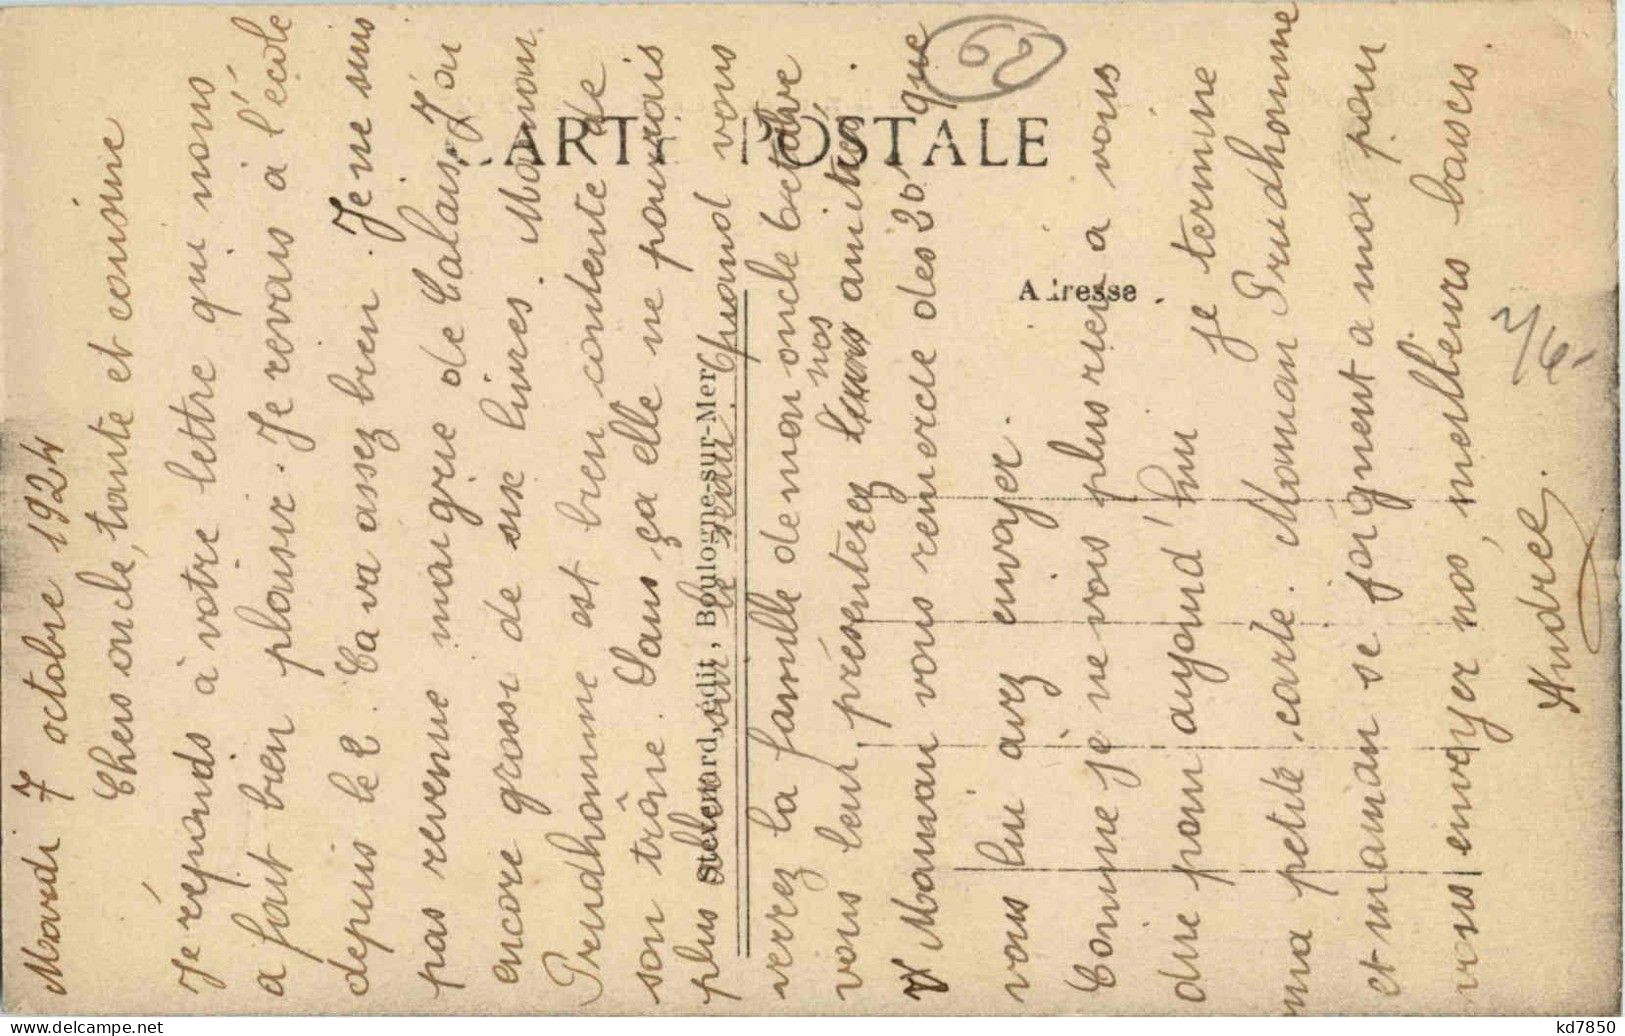 Mardi 7 octobre 1924
Chers oncle, tante et cousine
Je réponds à votre lettre qui nous
a fait bien plaisir. Je revais à l'école
depuis le 2. Ca va assez bien. Je ne suis
pas revenue maigrie de Calais. J'ai
encore grossi de six livres. Maman
Prudhomme est bien contente de
son trône. Sans ça elle ne pourrais
plus s'asseoir le soir. Quand vous
verrez la famille de mon oncle Octave
vous leur présenterez nos amitiés.
Maman vous remercie des 20 que
vous lui avez envoyer.
Comme je ne vois plus rien a vous
dire pour aujourd'hui je termine
ma petite carte. Maman Prudhomme
et maman se joignent a moi pour
vous envoyer nos meilleurs baisers.
Andrée.
CARTE POSTALE
Adresse
Stévenard, édit., Boulogne-sur-Mer
62
2/6-
kd7850